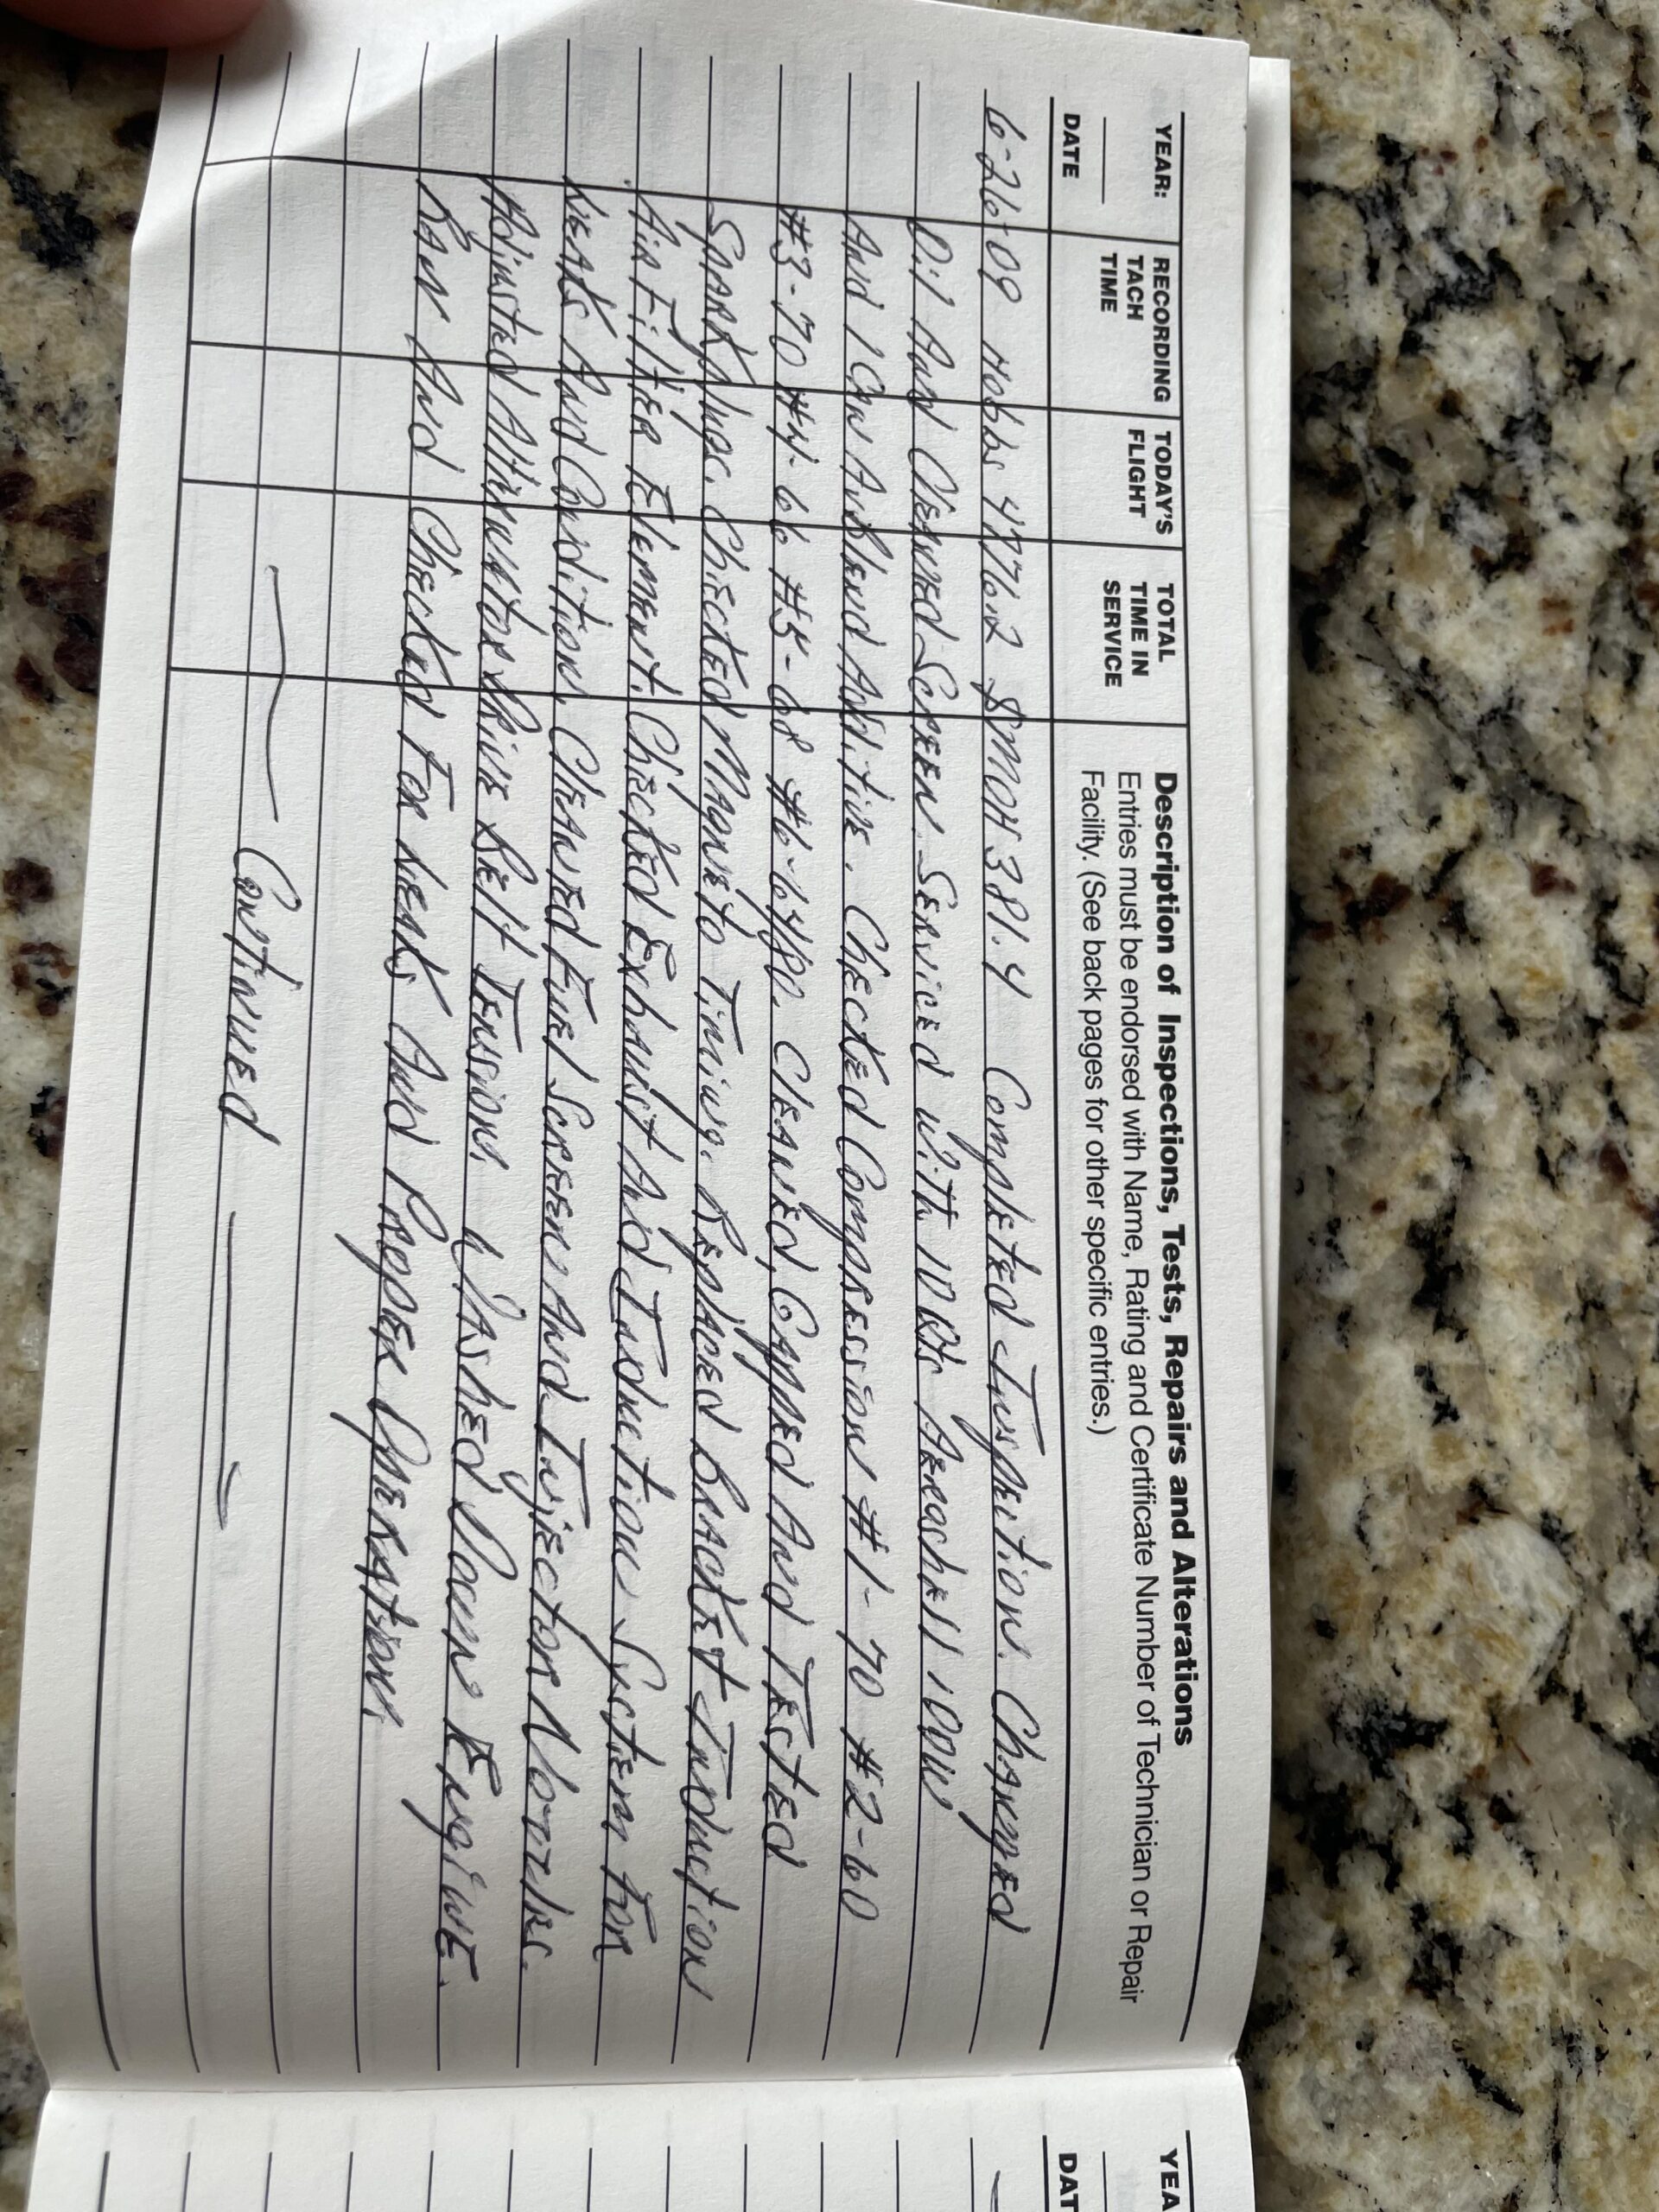 YEAR:
RECORDING TACH TIME
TODAY'S FLIGHT
TOTAL TIME IN SERVICE
Description of Inspections, Tests, Repairs and Alterations
Entries must be endorsed with Name, Rating and Certificate Number of Technician or Repair
Facility. (See back pages for other specific entries.)
DATE
6-26-09 Hobbs 4776.2 SMOH 381.4 Completed Inspection. Changed
Oil And Cleaned Screen. Serviced with 10 Qts Aeroshell 100W
And 1 Can AvBlend Additive. Checked Compression #1-70 #2-60
#3-70 #4-66 #5-68 #6-64/80. Cleaned, Gapped And Tested
Spark plugs. Checked Magneto Timing. Replaced Bracket Induction
Air Filter Element. Checked Exhaust And Induction System For
Leaks And Condition. Cleaned Fuel Screens And Injector Nozzles.
Adjusted Alternator Drive Belt Tension. Washed Down Engine.
Ran And Checked For Leaks And Proper Operation.
Continued
YEA
DAT